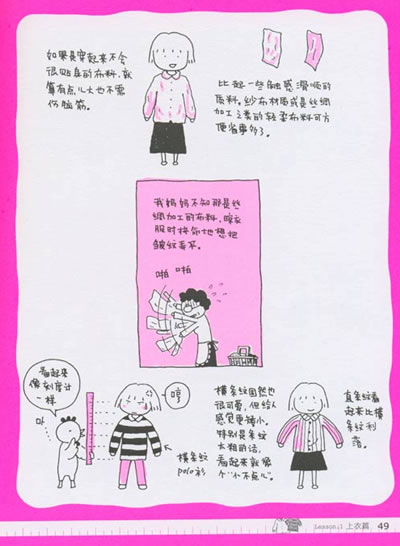 如果是穿起来不会
很贴身的布料,就
算有点儿大也不需
伤脑筋。
比起一些触感滑顺的
质料。纱布材质或是丝
绸加工之类的轻柔布料可方
便省事多了。
我妈妈不知那是丝
绸加工的布料,晾衣
服时拼命地想把
皱纹弄平。
啪 啪
看起来
像刻度计
一样
哼
横条纹
polo衫
横条纹固然也
很可爱,但给人
感觉更矮小。
特别是条纹
太粗的话,
看起来就像
个“小不点儿”。
直条纹看
起来比横
条纹利
落。
Lesson.1 上衣篇 49